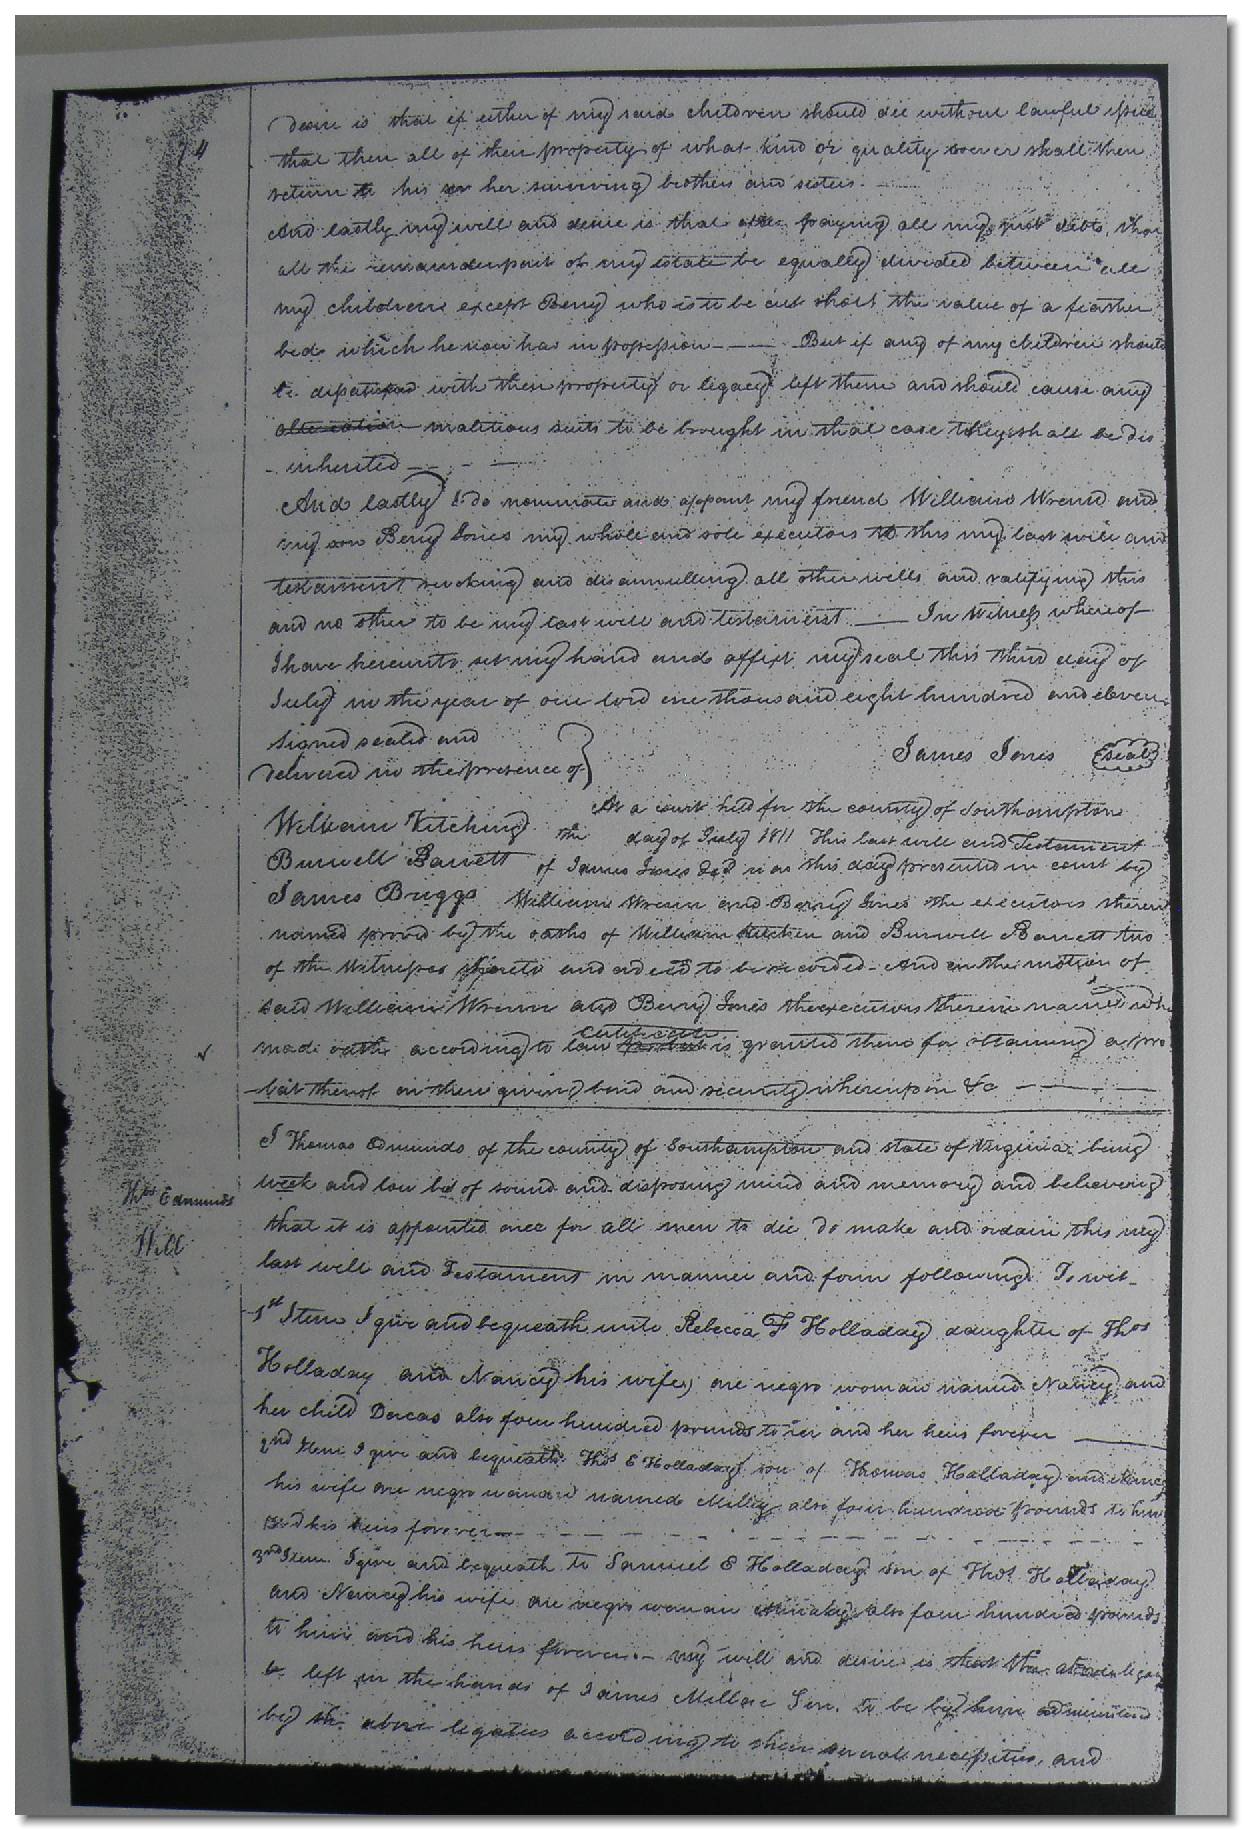 14
desire is that if either of my said children should die without lawful issue
that then all of their property of what kind or quality soever shall then
return to his or her surviving brothers and sisters.
And lastly my will and desire is that after paying all my just debts, that
all the remainder part of my estate be equally divided between all
my children except Berry who is to be cut short the value of a feather
bed which he now has in possession — — But if any of my children should
be with their property or legacy left them and should cause any
malitious suits to be brought in that case they shall be dis
inherited — - —
And lastly I do nominate and appoint my friend William Wrenn and
my son Berry Jones my whole and sole executors to this my last will and
testament revoking and disannulling all other wills and ratifying this
and no other to be my last will and testament — In Witness whereof
I have hereunto set my hand and affixt my seal this third day of
July in the year of our lord one thousand eight hundred and eleven
Signed sealed and
delivered in the presence of }
James Jones (seal)
William Kitching
Burwell Barrett
James Briggs
At a court held for the county of Southampton
the day of July 1811 This last will and Testament
of James Jones decd was this day presented in court by
William Wrenn and Berry Jones the executors therein
named proved by the oaths of William Kitchen and Burwell Barrett two
of the Witnesses thereto and ordered to be recorded - And on the motion of
said William Wrenn and Berry Jones the executors therein named who
certificate
made oath according to law is granted them for obtaining a pro
bate thereof on their giving bond and security whereupon &c — — —
Thos Edmunds
Will
I Thomas Edmunds of the county of Southampton and state of Virginia being
week and low but of sound and disposing mind and memory and believing
that it is appointed once for all men to die do make and ordain this my
last will and Testament in manner and form following To wit -
1st Item I give and bequeath unto Rebecca F Holladay daughter of Thos
Holladay and Nancy his wife, one negro woman named Nancy and
her child Dorcas also four hundred pounds to her and her heirs forever —
2nd Item I give and bequeath Thos E Holladay son of Thomas Holladay and Nancy
his wife one negro woman named Milley also four hundred pounds to him
and his heirs forever —
3rd Item I give and bequeath to Samuel E Holladay son of Thos Holladay
and Nancy his wife one negro woman also four hundred pounds
to him and his heirs forever - my will and desire is that the above
be left in the hands of James Millar Sen. to be by him administered
by the above legaties according to their several necessities, and